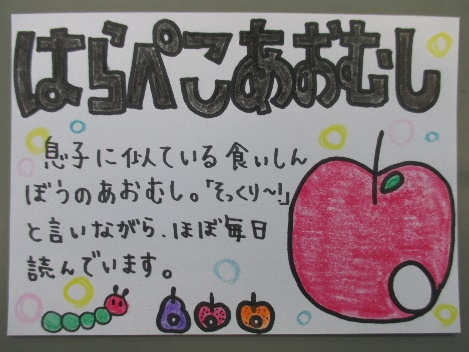 はらぺこあおむし
息子に似ている食いしん
ぼうのあおむし。「そっくり〜!」
と言いながら、ほぼ毎日
読んでいます。